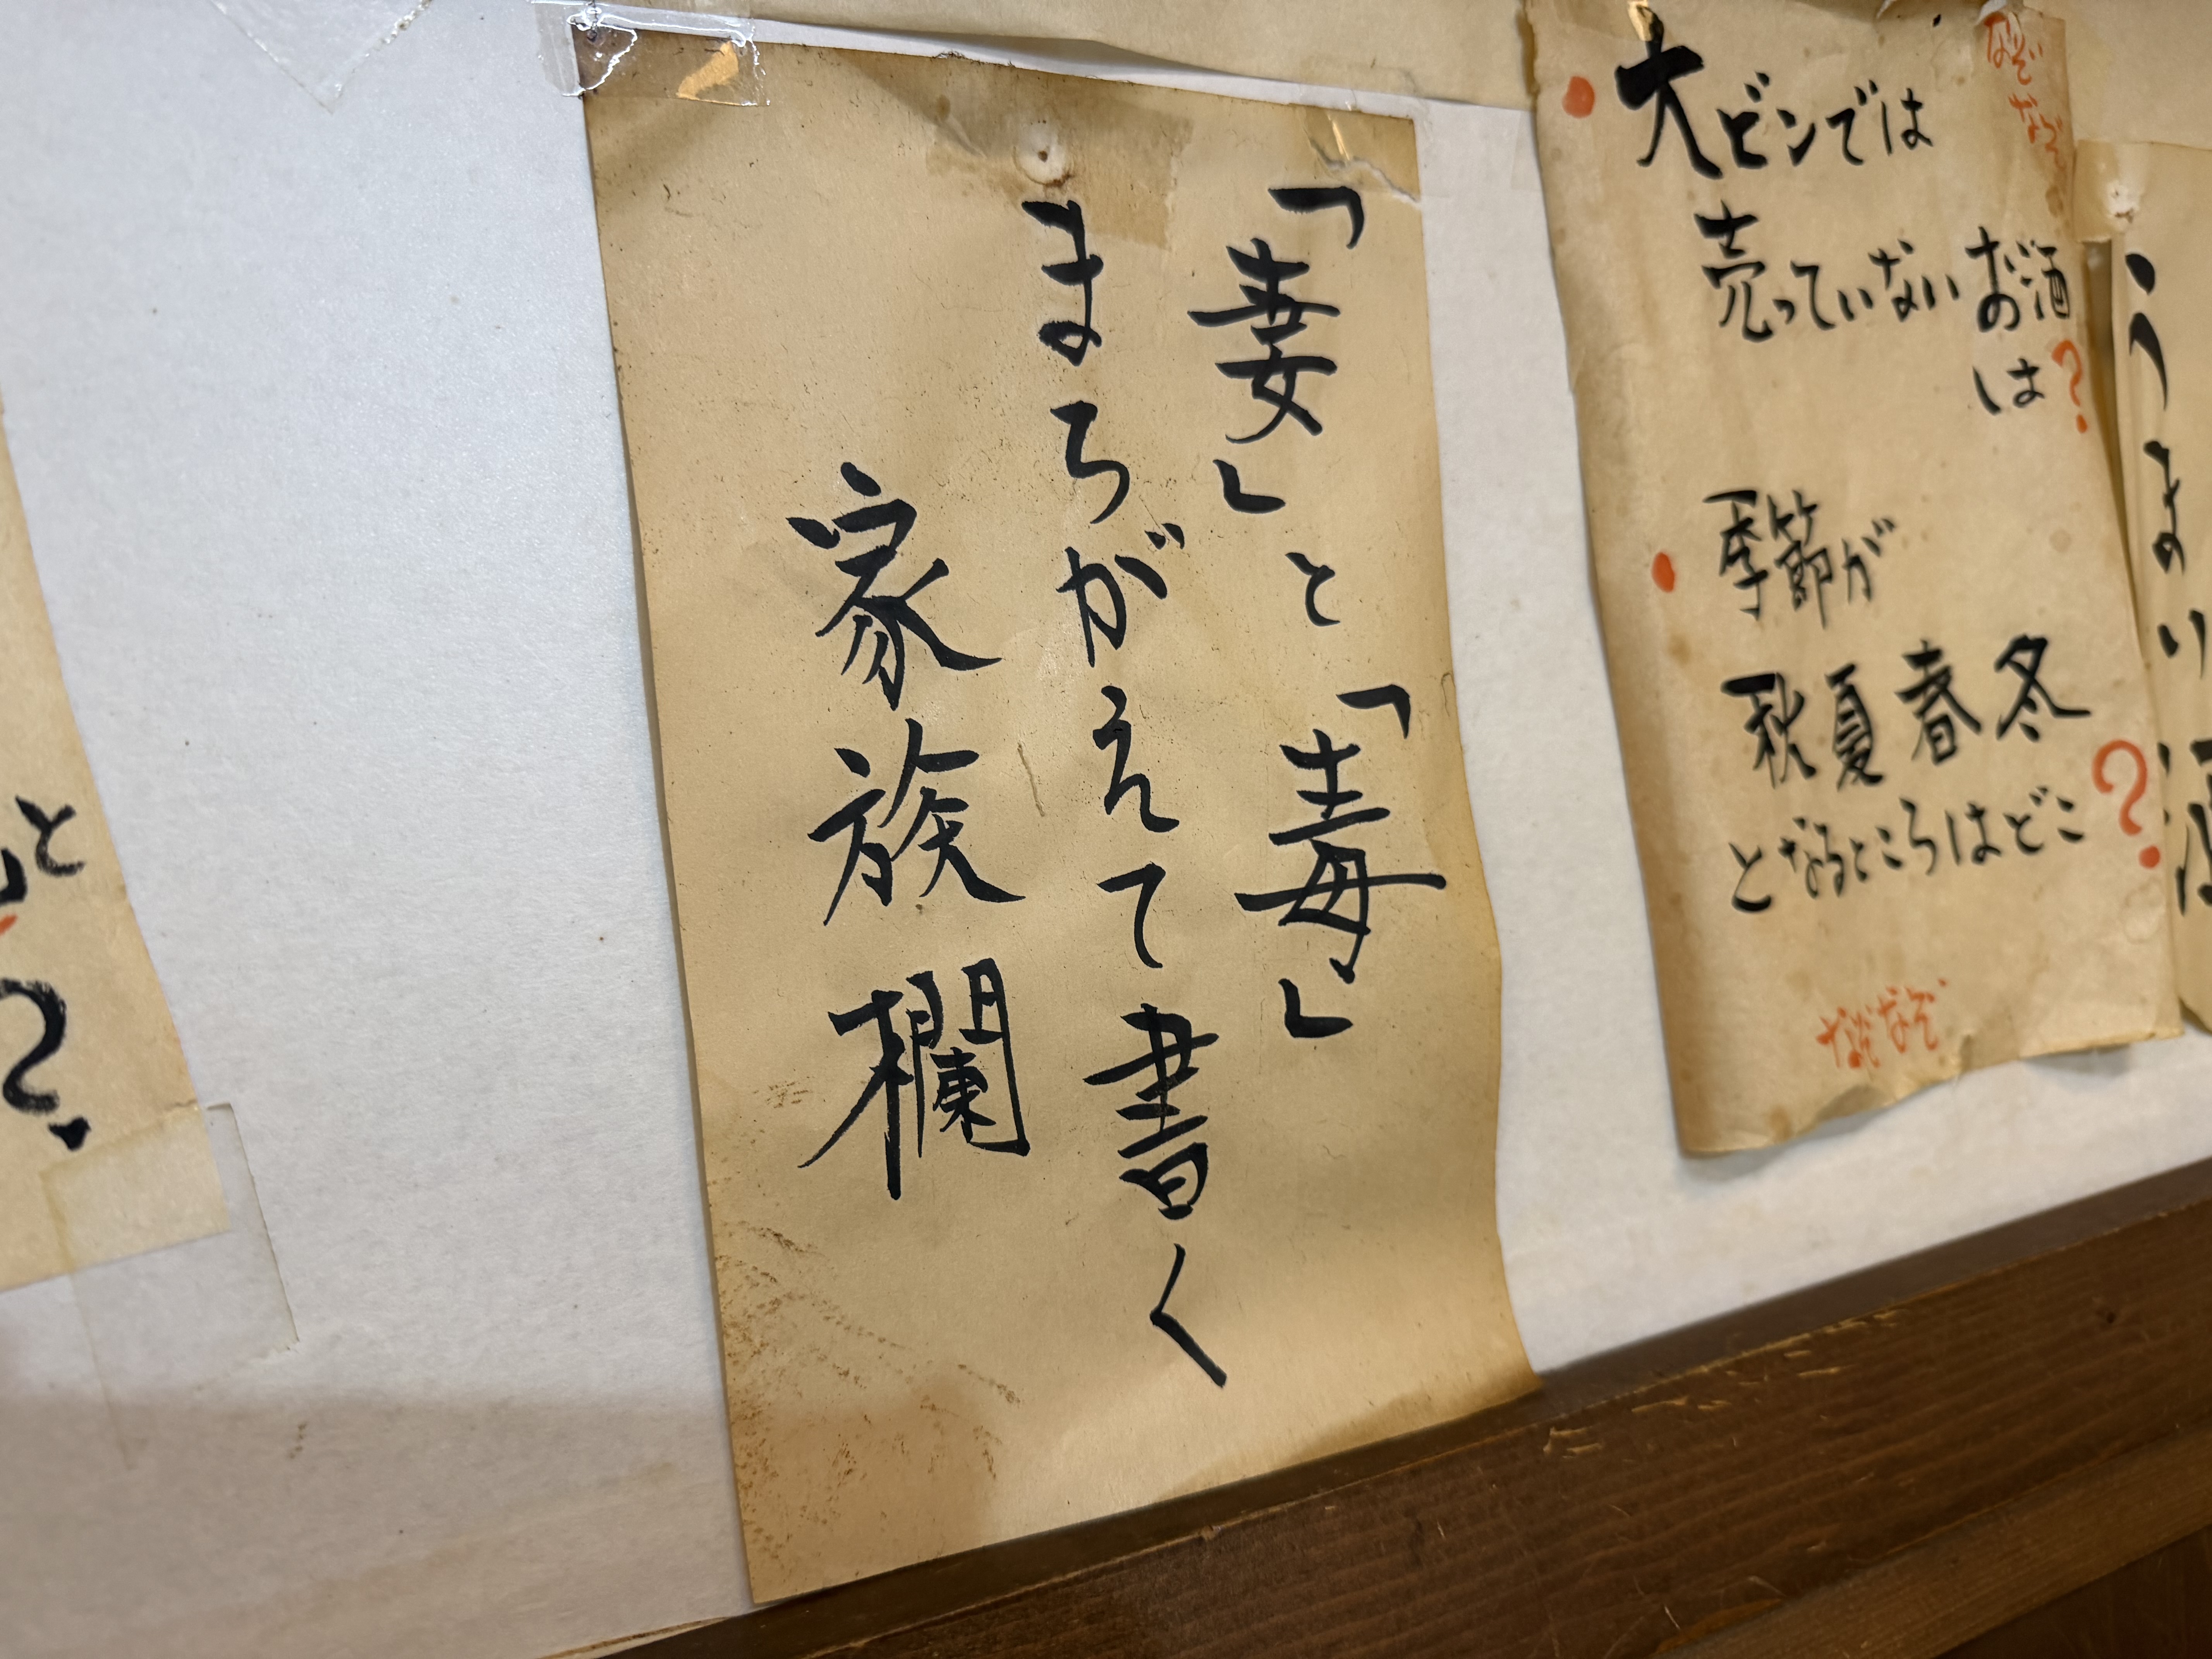 「妻」と「毒」
まちがえて書く
家族欄
なぞなぞ
大ビンでは
売っていないお酒
は?
季節が
秋夏春冬
となるところはどこ?
なぞなぞ
と
?